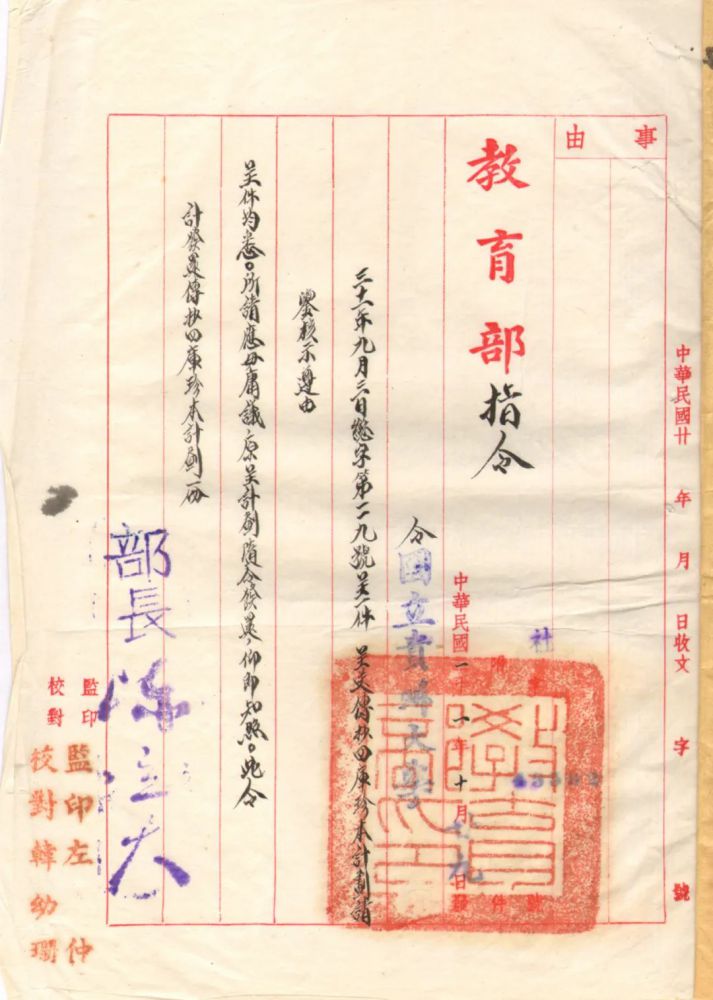 中華民國廿 年 月 日收文 字 號
事由
教育部指令
社
中華民國 一年十月 九日發
令國立貴陽大學
三十一年九月三日總字第一二九號呈一件 呈文傳抄四庫珍本計劃請
鑒核示遵由
呈件均悉。所請應毋庸議，原呈計劃隨令發還，仰即知照。此令
計發還傳抄四庫珍本計劃一份
部長陳立夫
監印
校對
監印左仲
校對韓幼